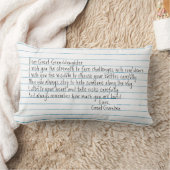 Dear Great Granddaughter
I wish you the strength to face challenges with confidence
I wish you the wisdom to choose your battles carefully
You may always stop to help someone along the way
Listen to your heart and take risks carefully
And always remember how much you are loved
Love,
Great Grandma